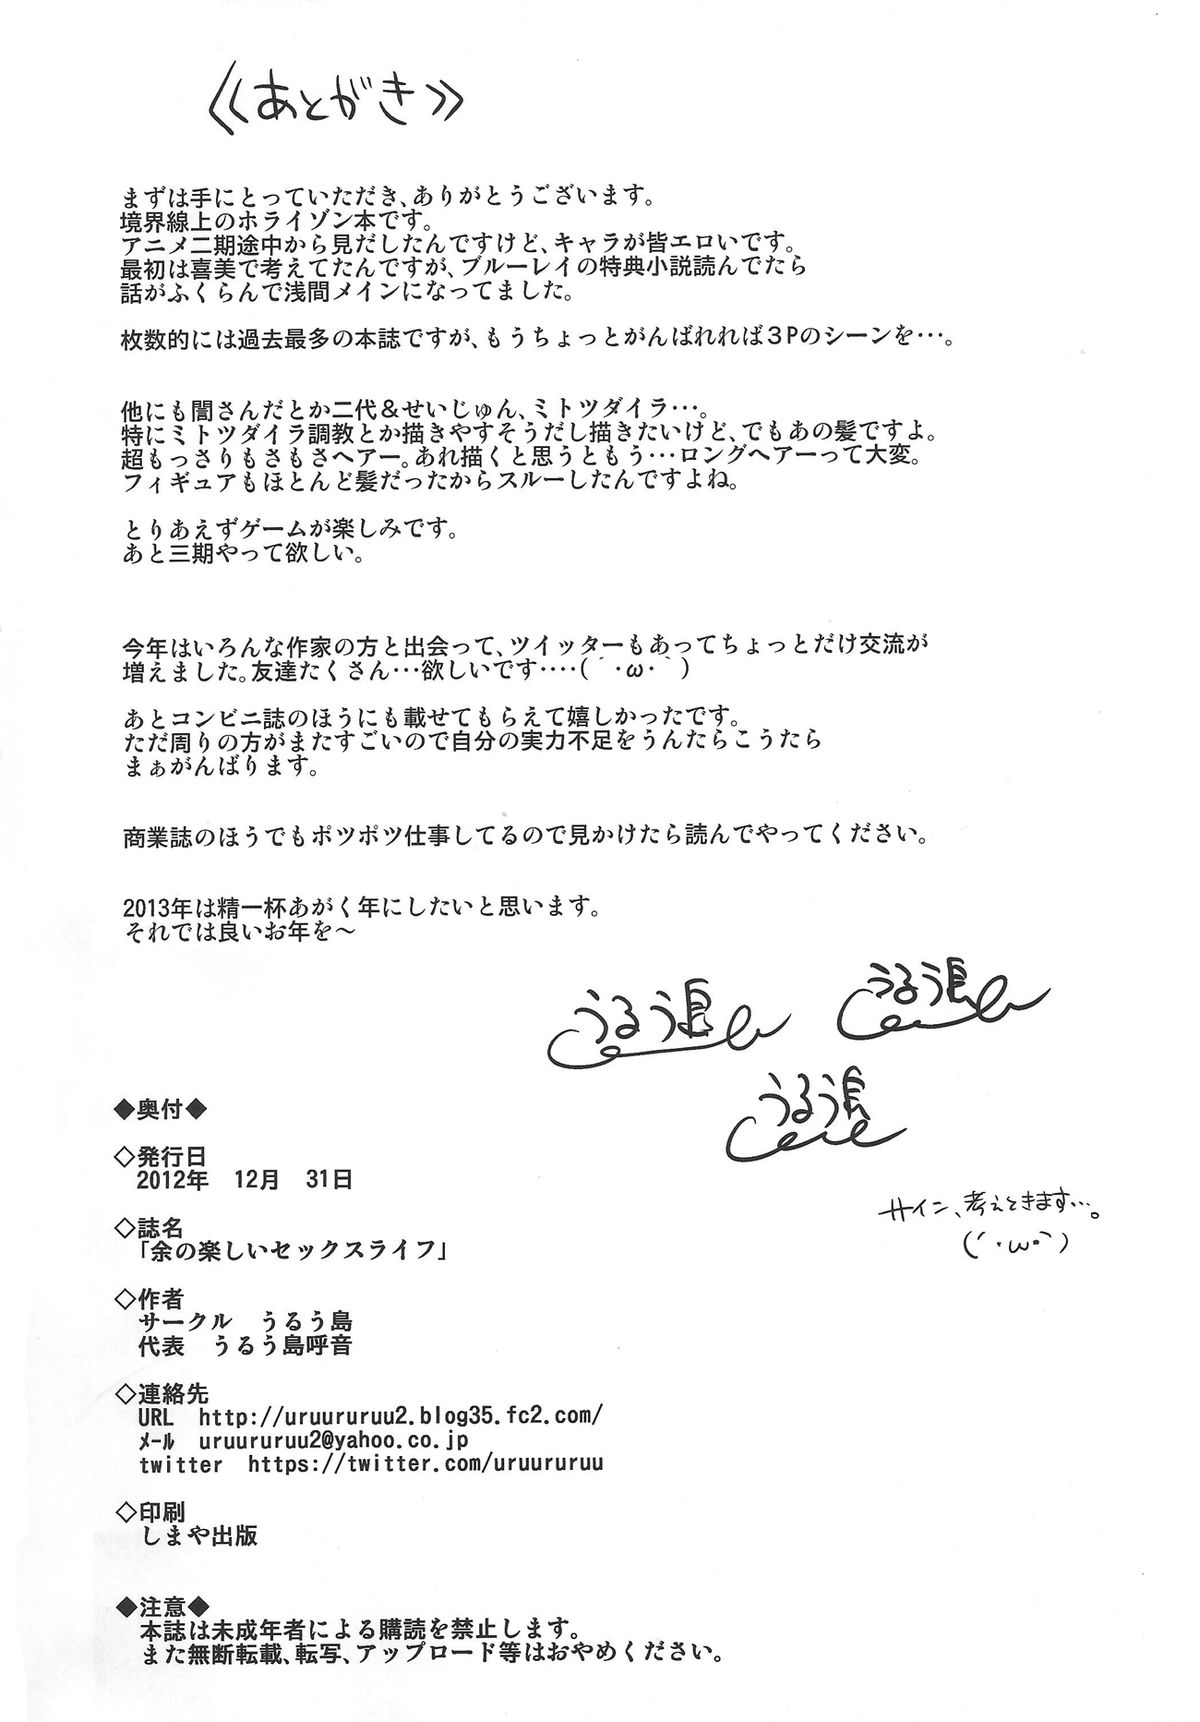 ≪あとがき≫
まずは手にとっていただき、ありがとうございます。
境界線上のホライゾン本です。
アニメ二期途中から見だしたんですけど、キャラが皆エロいです。
最初は喜美で考えてたんですが、ブルーレイの特典小説読んでたら
話がふくらんで浅間メインになってました。
枚数的には過去最多の本誌ですが、もうちょっとがんばれれば３Pのシーンを…。
他にも闇さんだとか二代＆せいじゅん、ミトツダイラ…。
特にミトツダイラ調教とか描きやすそうだし描きたいけど、でもあの髪ですよ。
超もっさりもさもさヘアー。あれ描くと思うともう…ロングヘアーって大変。
フィギュアもほとんど髪だったからスルーしたんですよね。
とりあえずゲームが楽しみです。
あと三期やって欲しい。
今年はいろんな作家の方と出会って、ツイッターもあってちょっとだけ交流が
増えました。友達たくさん…欲しいです‥‥(´･ω･`)
あとコンビニ誌のほうにも載せてもらえて嬉しかったです。
ただ周りの方がまたすごいので自分の実力不足をうんたらこうたら
まぁがんばります。
商業誌のほうでもポツポツ仕事してるので見かけたら読んでやってください。
2013年は精一杯あがく年にしたいと思います。
それでは良いお年を～
うるう島
うるう島
うるう島
サイン、考えときます…。
(´･ω･`)
◆奥付◆
◇発行日
2012年　12月　31日
◇誌名
「余の楽しいセックスライフ」
◇作者
サークル　うるう島
代表　うるう島呼音
◇連絡先
URL　http://uruururuu2.blog35.fc2.com/
ﾒｰﾙ　uruururuu2@yahoo.co.jp
twitter　https://twitter.com/uruururuu
◇印刷
しまや出版
◆注意◆
本誌は未成年者による購読を禁止します。
また無断転載、転写、アップロード等はおやめください。